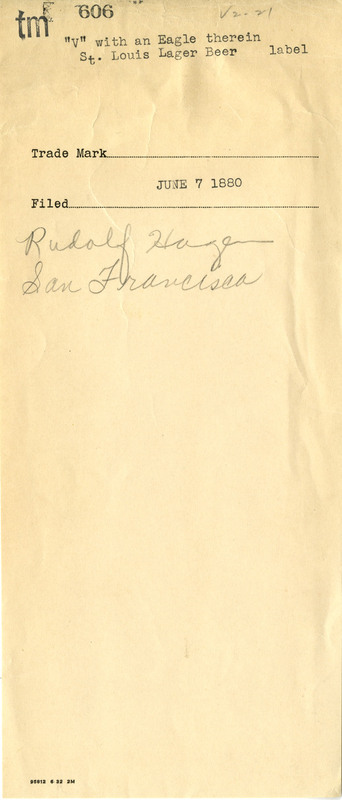 tm 606 V2-21
"V" with an Eagle therein
St. Louis Lager Beer label
Trade Mark
JUNE 7 1880
Filed
Rudolf Hagen
San Francisco
95612 6 32 2M